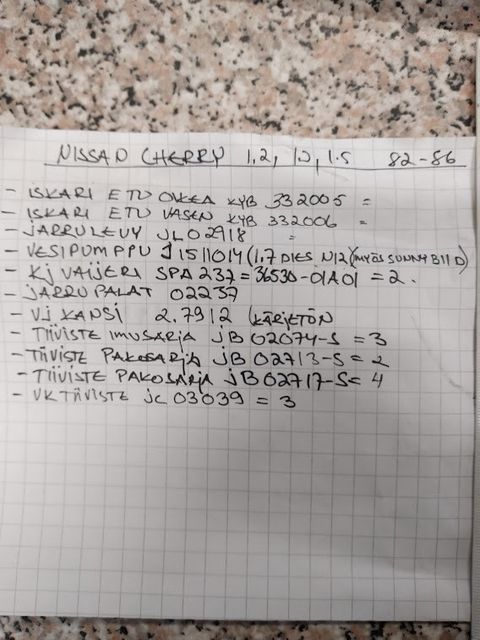 NISSAN CHERRY 1.2, 1.3, 1.5 82-86
- ISKARI ETU OIKEA KYB 332005 =
- ISKARI ETU VASEN KYB 332006 =
- JARRULEVY JL02918 =
- VESIPUMPPU J1511014 (1.7 DIES N12) (MYÖS SUNNY B11 D)
- KJ VAIJERI SPA 237 = 36530-01A01 = 2.
- JARRUPALAT 02237
- VJ KANSI 2.7912 KÄRJETÖN
- TIIVISTE IMUSARJA JB 02074-S = 3
- TIIVISTE PAKOSARJA JB 02713-S = 2
- TIIVISTE PAKOSARJA JB 02717-S = 4
- VK TIIVISTE JC 03039 = 3